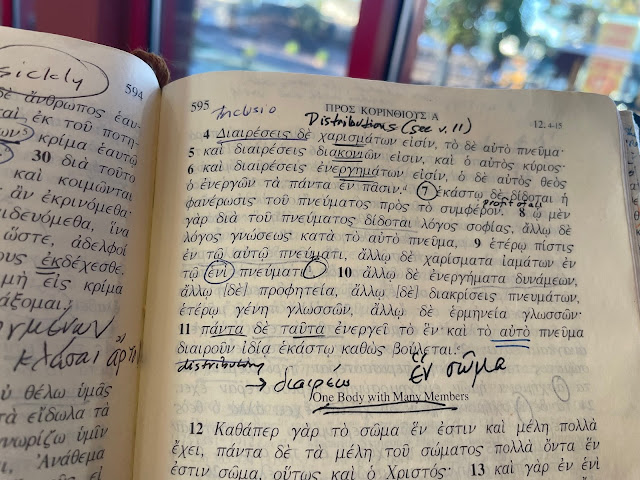 sickly
594
δὲ ἄνθρωπος ἑαυ-
καὶ ἐκ τοῦ ποτη-
κρίμα ἑαυτῷ
30 διὰ τοῦτο
καὶ κοιμῶνται
ἂν ἐκρινόμεθα·
ιδευόμεθα, ἵνα
ὥστε, ἀδελφοί
ους ἐκδέχεσθε.
μὴ εἰς κρίμα
άξομαι.
κλάσαι
ῦ θέλω ὑμᾶς
τὰ εἴδωλα τὰ
νωρίζω ὑμῖν
Ἀνάθεμα
595 Inclusio ΠΡΟΣ ΚΟΡΙΝΘΙΟΥΣ Α 12.4-15
Distributions (see v. 11)
4 Διαιρέσεις δὲ χαρισμάτων εἰσίν, τὸ δὲ αὐτὸ πνεῦμα·
5 καὶ διαιρέσεις διακονιῶν εἰσιν, καὶ ὁ αὐτὸς κύριος·
6 καὶ διαιρέσεις ἐνεργημάτων εἰσίν, ὁ δὲ αὐτὸς θεὸς
ὁ ἐνεργῶν τὰ πάντα ἐν πᾶσιν. 7 ἑκάστῳ δὲ δίδοται ἡ
φανέρωσις τοῦ πνεύματος πρὸς τὸ συμφέρον. 8 ᾧ μὲν
profit of all
γὰρ διὰ τοῦ πνεύματος δίδοται λόγος σοφίας, ἄλλῳ δὲ
λόγος γνώσεως κατὰ τὸ αὐτὸ πνεῦμα, 9 ἑτέρῳ πίστις
ἐν τῷ αὐτῷ πνεύματι, ἄλλῳ δὲ χαρίσματα ἰαμάτων ἐν
τῷ ἑνὶ πνεύματι, 10 ἄλλῳ δὲ ἐνεργήματα δυνάμεων,
ἄλλῳ [δὲ] προφητεία, ἄλλῳ [δὲ] διακρίσεις πνευμάτων,
ἑτέρῳ γένη γλωσσῶν, ἄλλῳ δὲ ἑρμηνεία γλωσσῶν·
11 πάντα δὲ ταῦτα ἐνεργεῖ τὸ ἓν καὶ τὸ αὐτὸ πνεῦμα
διαιροῦν ἰδίᾳ ἑκάστῳ καθὼς βούλεται.
distributing
→ διαιρεω ἓν σῶμα
One Body with Many Members
12 Καθάπερ γὰρ τὸ σῶμα ἕν ἐστιν καὶ μέλη πολλὰ
ἔχει, πάντα δὲ τὰ μέλη τοῦ σώματος πολλὰ ὄντα ἕν
ἐστιν σῶμα, οὕτως καὶ ὁ Χριστός· 13 καὶ γὰρ ἐν ἑνὶ